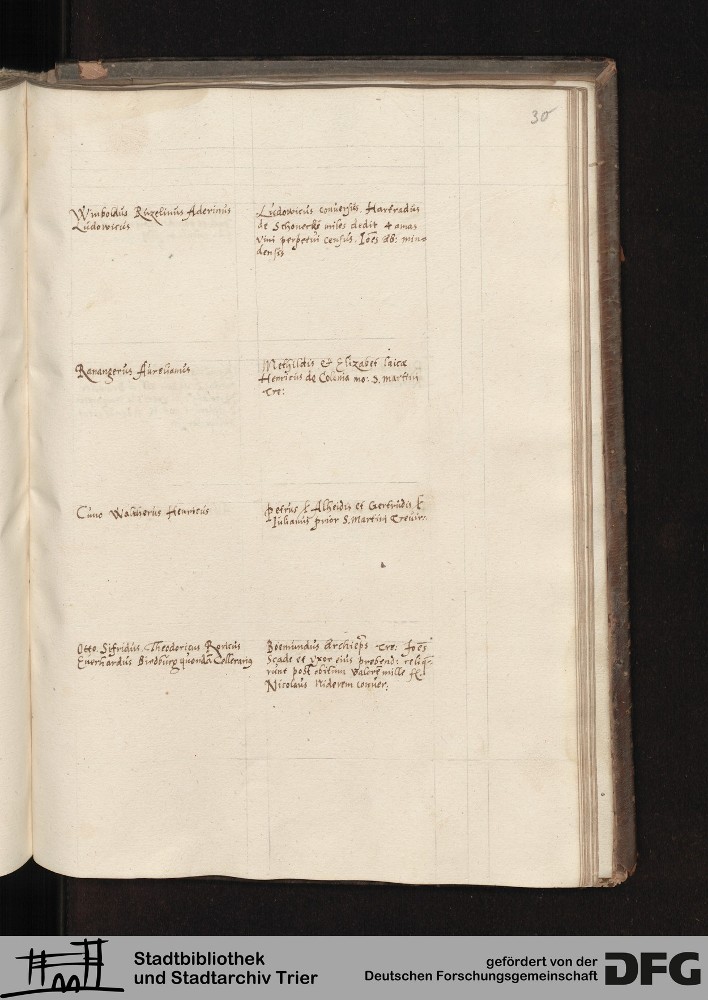 30
Wimboldus Ruzelinus Aderinus
Ludowicus
Ludowicus conversus. Hartradus
de Schonecke miles dedit 4 amas
vini perpetui census. Joes ab: mino
densis
Ranangerus Aurelianus
Methildis et Elizabet laicæ
Henricus de Colonia mo: S. Martini
Tre:
Cuno Walterus Henricus
Petrus Alheidis et Gertrudis
Iulianus prior S. Martini Trevir:
Otto. Sifridus. Theodoricus Roricus
Everhardus Birdburg quondã Cellerarius
Boemundus Archieps Tre: Joes
Scade et uxor eius prebend: reliq-
runt post obitum valore mille fl.
Nicolaus Niderem conver:
Stadtbibliothek
und Stadtarchiv Trier
gefördert von der
Deutschen Forschungsgemeinschaft
DFG